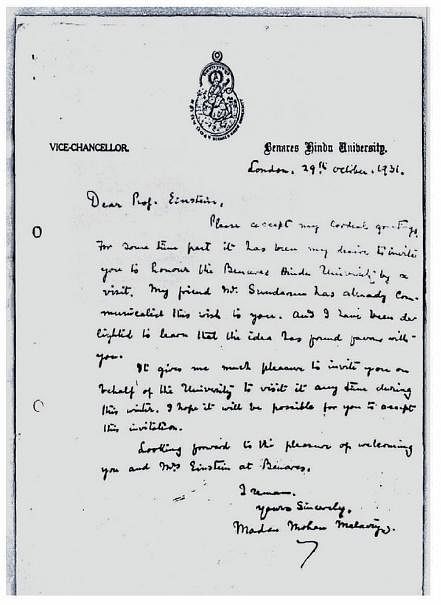 VICE-CHANCELLOR.
Benares Hindu University.
London. 29th October. 1931.
Dear Prof. Einstein,
Please accept my cordial
For some time past it has been my desire to invite
you to honour the Benares Hindu University by a
visit. My friend Mr. Sundaram has already com-
municated this wish to you. And I have been de-
lighted to learn that the idea has found favour with
you.
It gives me much pleasure to invite you on
behalf of the University to visit it any time during
this winter. I hope it will be possible for you to accept
this invitation.
Looking forward to the pleasure of welcoming
you and Mrs Einstein at Benares.
I remain.
Yours Sincerely,
Madan Mohan Malaviya.